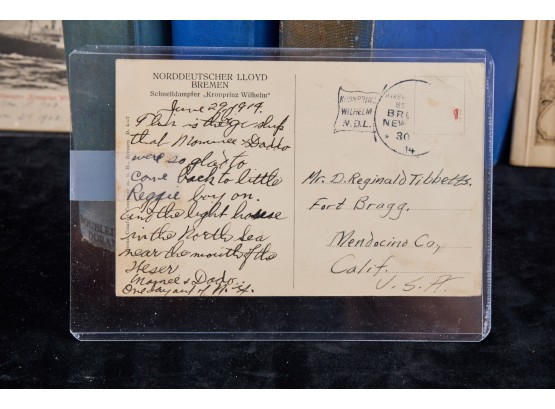 NORDDEUTSCHER LLOYD
BREMEN
Schnelldampfer „Kronprinz Wilhelm"
June 29, 1914.
This is the ship
that Mommee Daddo
were so glad to
come back to little
Reggie boy on.
and the light house
in the North Sea
near the mouth of the
Weser
Mamee & Dado.
One day out of N.Y.
KRONPRINZ
WILHELM
N.D.L.
BRE
NEW
30
14
Mr. D. Reginald Tibbetts.
Fort Bragg.
Mendocino Co,
Calif.
U.S.A.